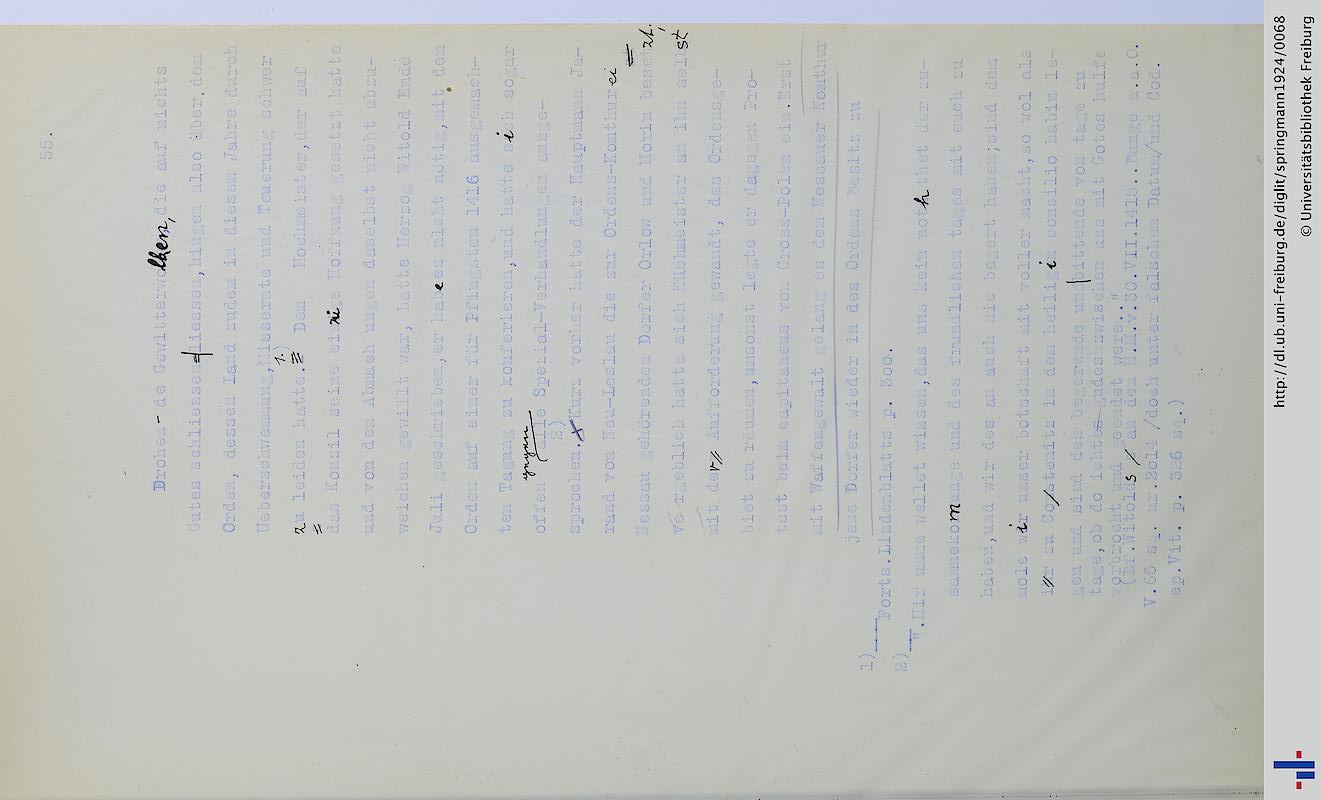 55.
Drohen- de Gewitterwolken, die auf nichts
Gutes schliessen liessen, hingen also über den
Orden, dessen Land zudem in diesem Jahre durch
Ueberschwemmung, Missernte und Teuerung schwer
zu leiden hatte. 1.) Dem Hochmeister, der auf
das Konzil seine einige Hoffnung gesetzt hatte
und von den Abmach ungen daselbst nicht abzu-
weichen gewillt war, hatte Herzog Witold Ende
Juli geschrieben, er habe es nicht nötig, mit dem
Orden auf einer für Pfingsten 1416 ausgemach-
ten Tagung zu konferieren, und hatte sich sogar
offen gegen die Spezial-Verhandlungen ausge-
sprochen. 2) Kurz vorher hatte der Hauptmann Ja-
rand von Neu-Leslau die zur Ordens-Komthurei
Nessau gehörenden Dörfer Orlow und Morin besetzt,
vergeblich hatte sich Küchmeister an ihn selbst
mit der Aufforderung gewandt, das Ordensge-
biet zu räumen, umsonst legte er dagegen Pro-
test beim capitaneus von Gross-Polen ein. Erst
mit Waffengewalt gelang es dem Nessauer Komthur
jene Dörfer wieder in des Ordens Besitz zu
1) Forts. Lindenblatts p. 300.
2) ". Hir umme wellet wissen, das uns kein noth thet der zu-
samnekomunge und des frundlichen tages mit euch zu
haben, und wir des an euch nie begert haben; sind dem
mole wir unser botschaft mit voller macht, so wol als
ir zu Costenitz in dem heiligi concilio habin le-
gen und sind des begerende und bittende von tage zu
tage, ob do ichtes gudes zwischen uns mit Gotes hulfe
vorbrocht und geendet were..."
(Bf. Witolds an den H.M.v.30.VII.1415.. a.a.O.
V.66 sq. nr.2014 /doch unter falschem Datum/und Cod.
ep. Vit. p. 326 sq.)
http://dl.ub.uni-freiburg.de/diglit/springmann1924/0068
© Universitätsbibliothek Freiburg